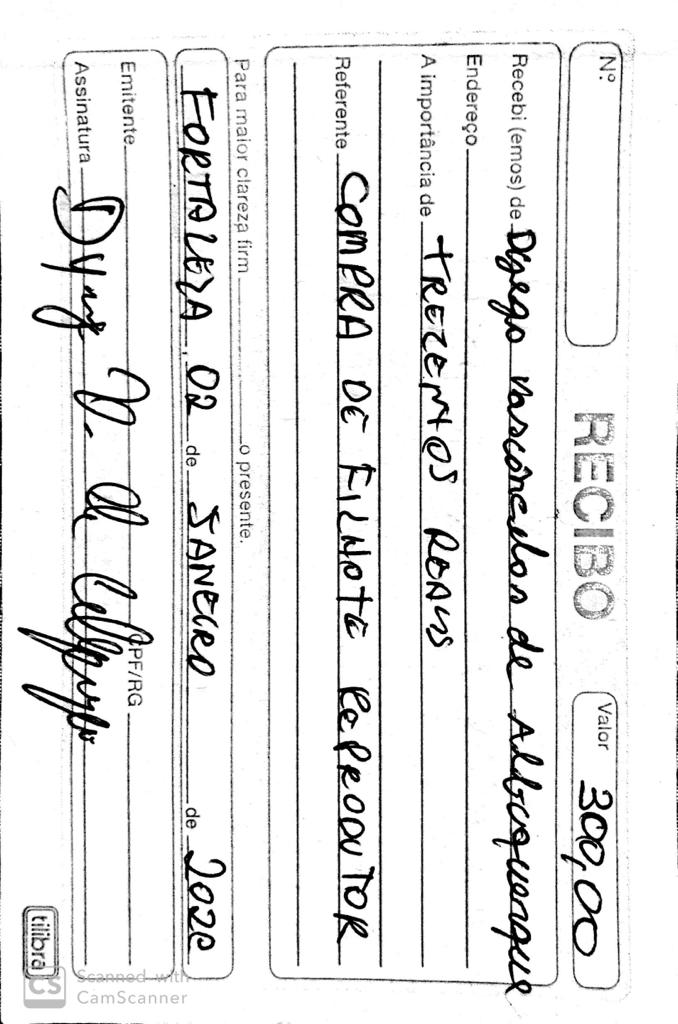 Nº RECIBO Valor 300,00
Recebi (emos) de Dyego Vasconcelos de Albuquerque
Endereço
A importância de TREZENTOS REAIS
Referente COMPRA DE FILHOTE REPRODUTOR
Para maior clareza firm o presente.
FORTALEZA, 02 de JANEIRO de 2020
Emitente CPF/RG
Assinatura
tilibra
CS Scanned with CamScanner